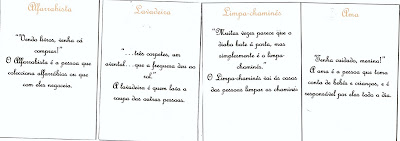 Alfarrabista
"Vendo livros, venha cá
comprar!"
O Alfarrabista é a pessoa que
colecciona alfarrábios ou que
com eles negoceia.
Lavadeira
"...três corpetes, um
avental...que a freguesa deu ao
rol."
A lavadeira é quem lava a
roupa das outras pessoas.
Limpa-chaminés
"Muitas vezes parece que o
diabo bate à porta, mas
simplesmente é o limpa-
chaminés."
O Limpa-chaminés vai às casas
das pessoas limpar as chaminés
Ama
"Tenha cuidado, menino!"
A ama é a pessoa que toma
conta de bebés e crianças, e é
responsável por eles todo o dia.